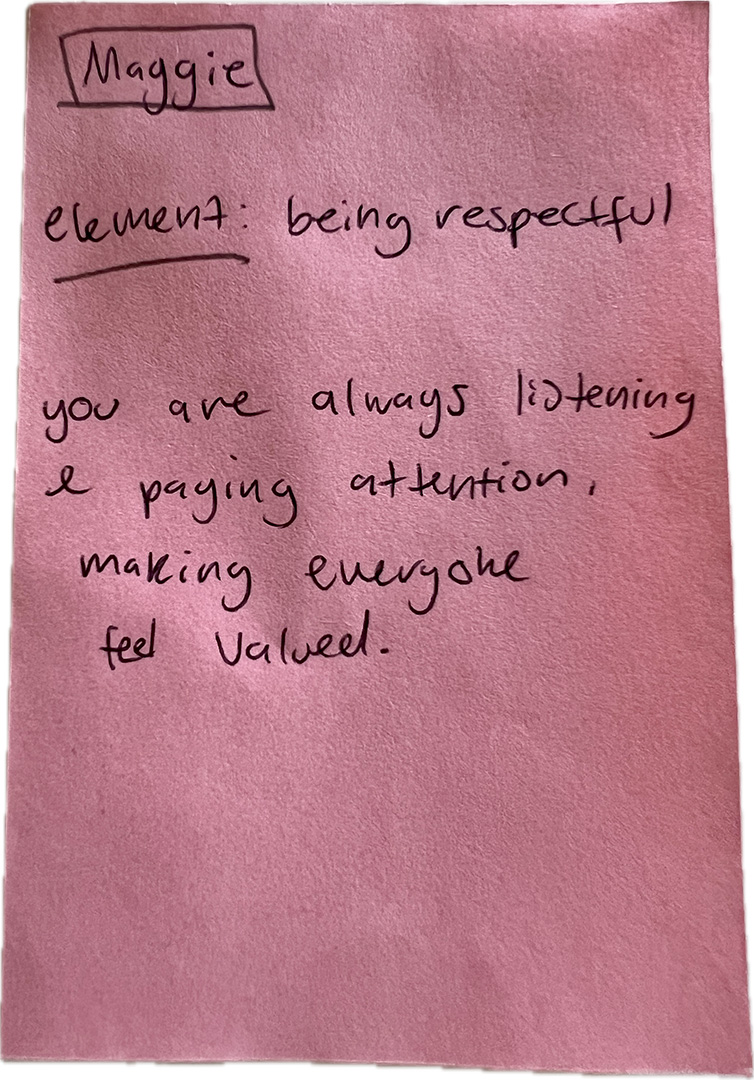 Maggie
element: being respectful
you are always listening
& paying attention,
making everyone
feel valued.